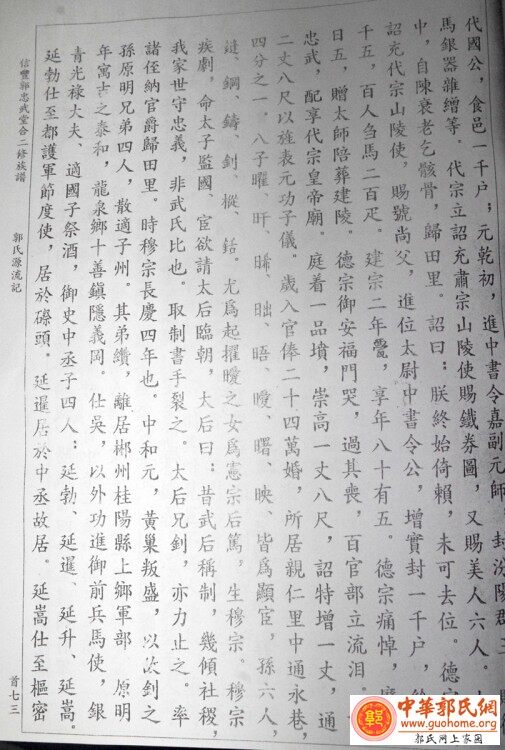 代國公，食邑一千户；元乾初，進中書令嘉副元帥，封汾陽君王
馬銀器雜繒等。代宗立詔充肅宗山陵使賜鐵券圖，又賜美人六人。
中，自陳衰老乞骸骨，歸田里。詔曰：朕終始倚賴，未可去位。德宗
詔充代宗山陵使，賜號尚父，進位太尉中書令公，增實封一千户，給
千五，百人芻馬二百疋。建宗二年薨，享年八十有五。德宗痛悼，廢
日五，贈太師陪葬建陵。德宗御安福門哭，過其喪，百官部立流泪
忠武，配享代宗皇帝廟。庭着一品墳，崇高一丈八尺，詔特增一丈，通
二丈八尺以旌表元功子儀。歲入官俸二十四萬婚，所居親仁里中通永巷，
四分之一，八子曜、旰、晞、昢、晤、曖、曙、映、皆爲顯宦，孫六人，
鏠、鋼、鑄、釗、樅、銛。尤爲起擢曖之女爲憲宗后篤，生穆宗。穆宗
疾劇，命太子監國，宦欲請太后臨朝，大后曰：昔武后稱制，幾傾社稷，
我家世守忠義，非武氏比也。取制書手裂之。太后兄釗，亦力止之。率
諸侄納官爵歸田里。時穆宗長慶四年也。中和元，黄巢叛盛，以次釗之
孫原明兄弟四人，散適子州。其弟纘，離居郴州桂陽縣上鄉軍部，原明
年寓吉之泰和，龍泉鄉十善鎮隱義岡。仕吴，以外功進御前兵馬使，銀
青光祿大夫、適國子祭酒，御史中丞子四人；延勃、延暹、延升、延嵩。
延勃仕至都護軍節度使，居於磉頭。延暹居於中丞故居。延嵩仕至樞密
信豐郭忠武堂合二修族譜
郭氏源流記
首七三
郭
中華郭氏網
www.guohome.org
郭氏网上家園